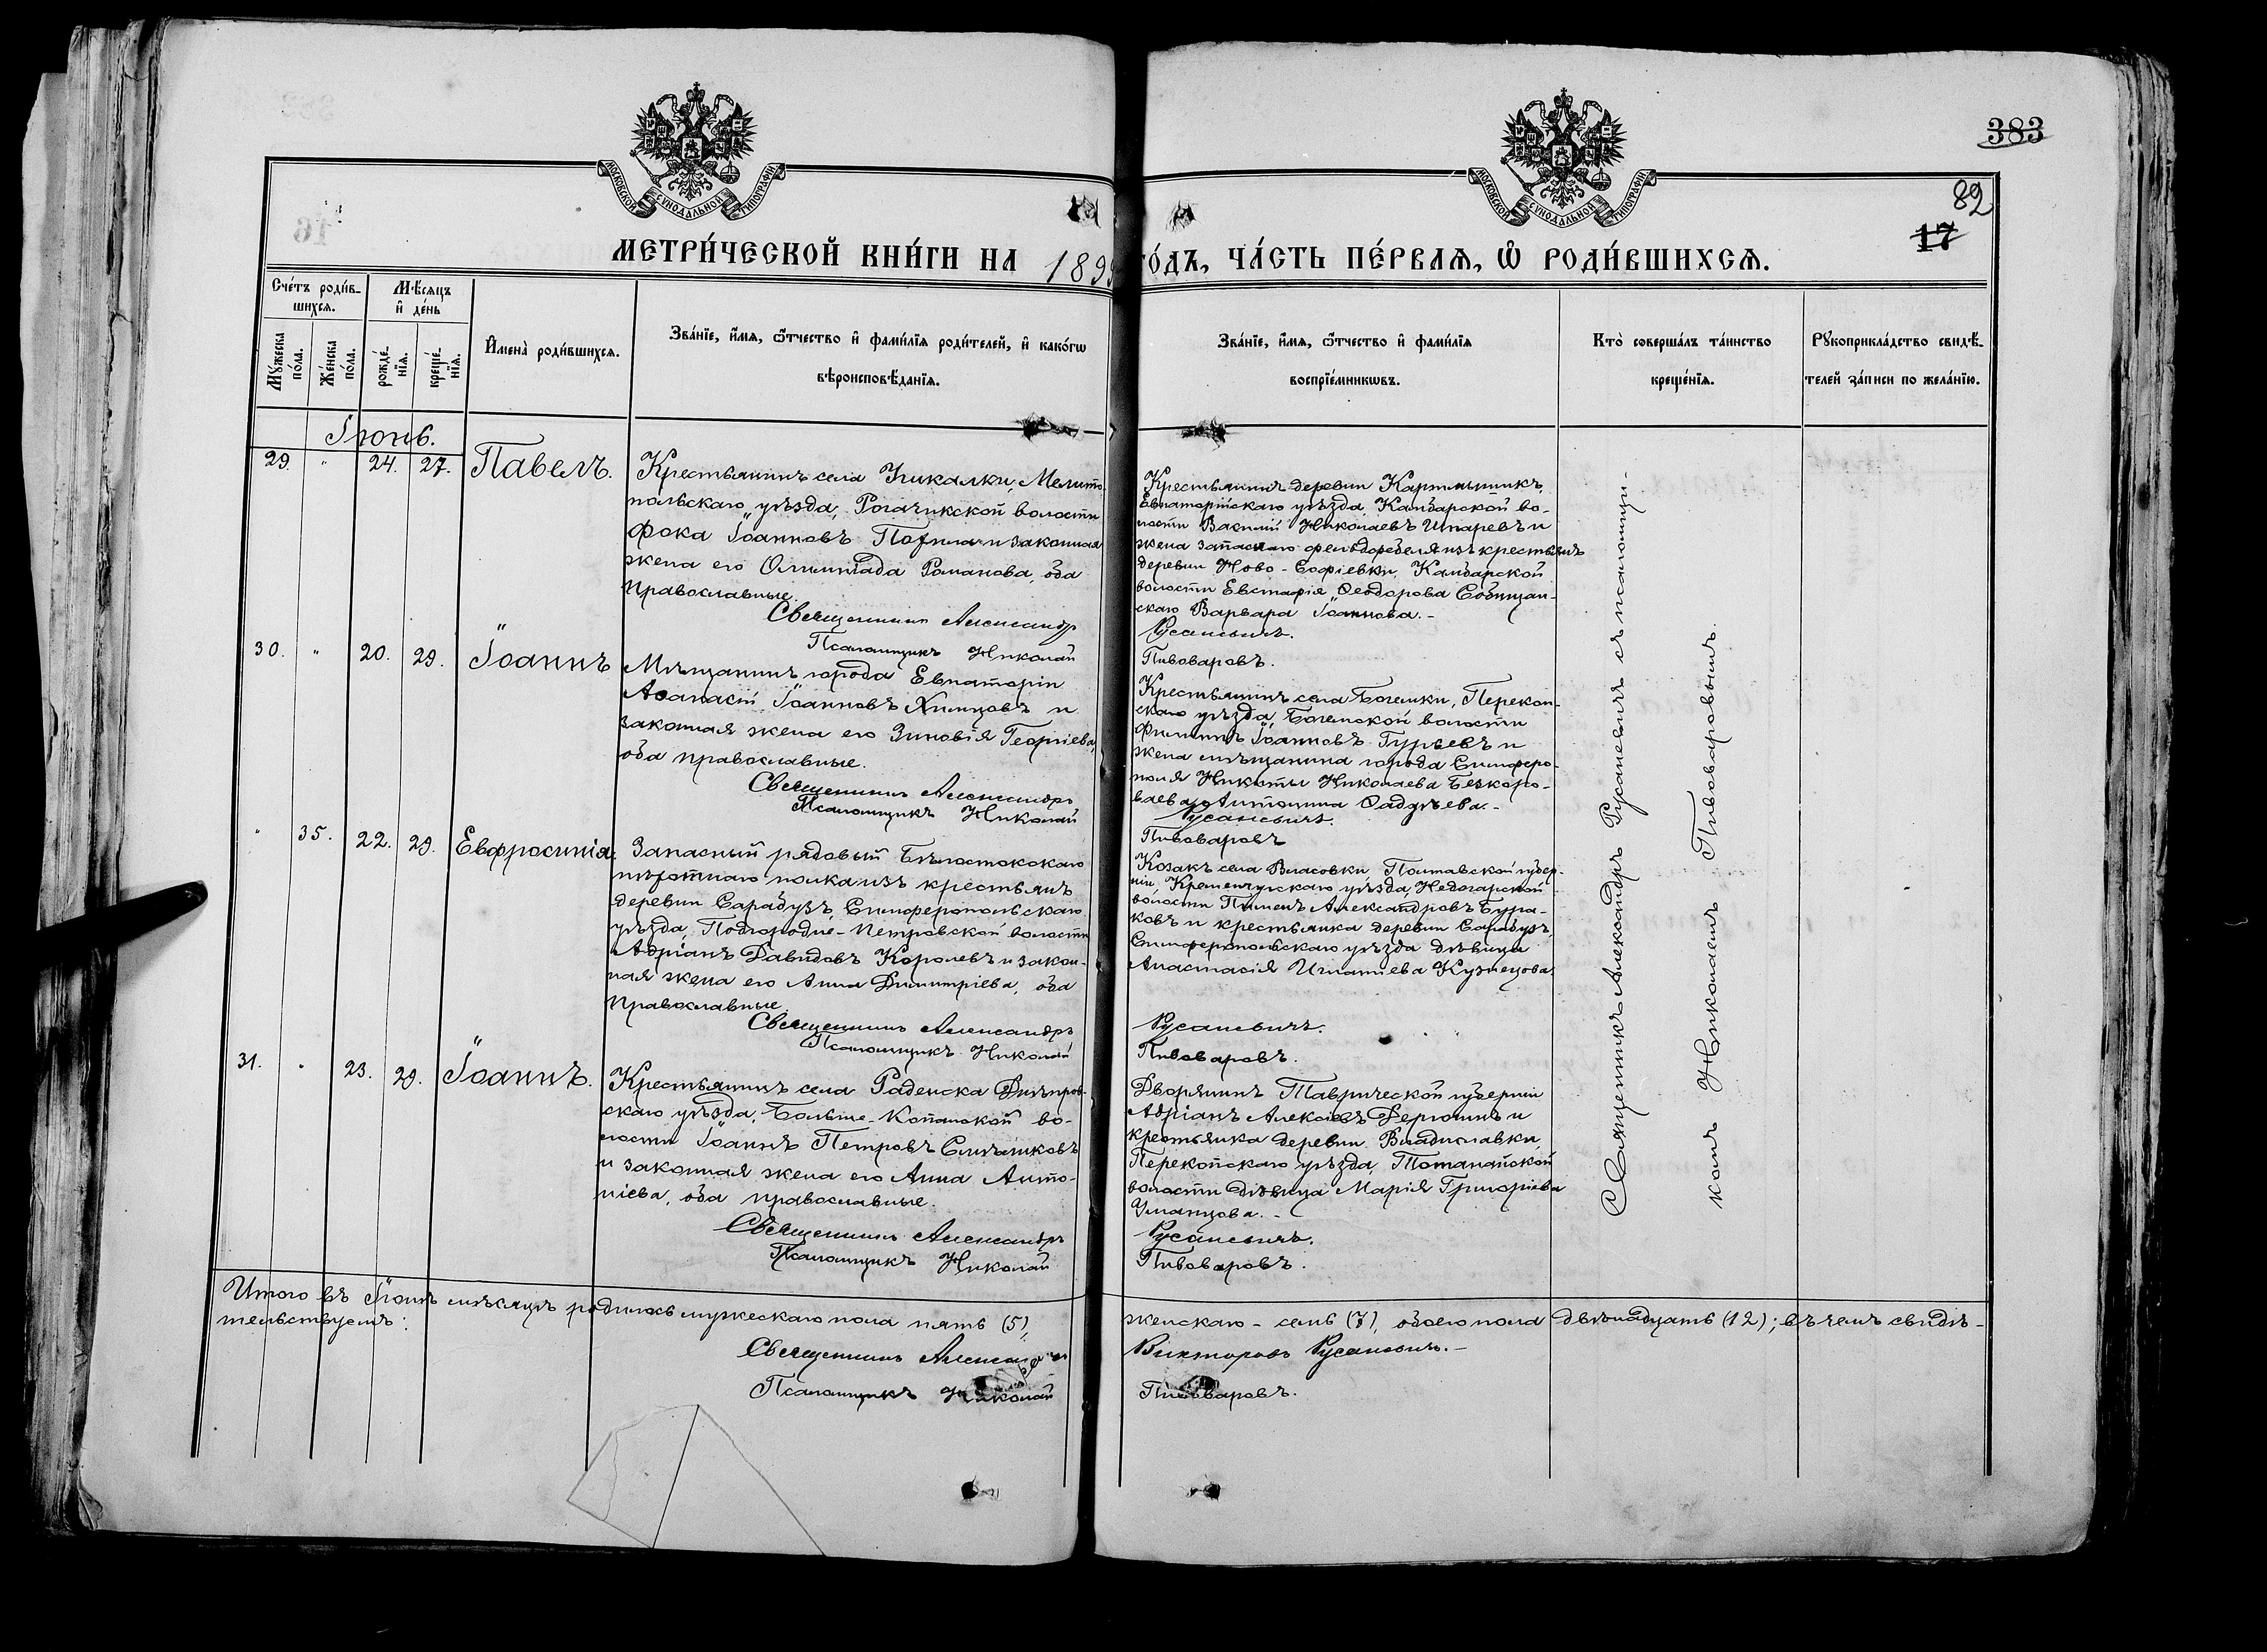 383
82
17
МОСКОВСКОЙ СУНОДАЛЬНОЙ ТИПОГРАФІИ
МОСКОВСКОЙ СУНОДАЛЬНОЙ ТИПОГРАФІИ
МЕТРИ́ЧЕСКОЙ КНИ́ГИ НА 1899 ГО́ДЪ, ЧА́СТЬ ПЕ́РВАѦ, Ѡ҆ РОДИ́ВШИХСѦ.
Сче́тъ роди́в-
шихсѧ.
Мꙋ́жеска по́ла.
Же́нска по́ла.
Мѣ́сѧцъ и҆ де́нь
рожде́-нїѧ.
креще́-нїѧ.
И҆мена̀ роди́вшихсѧ.
Зва́нїе, и҆́мѧ, ѻ҆́тчество и҆ фами́лїѧ роди́телей, и҆ како́гѡ
вѣроисповѣ́данїѧ.
Зва́нїе, и҆́мѧ, ѻ҆́тчество и҆ фами́лїѧ
воспрїе́мникѡвъ.
Кто̀ соверша́лъ та́инство
креще́нїѧ.
Рꙋкоприкла́дство свидѣ́-
телей за́писи по жела́нїю.
Іюнь.
29. " 24. 27. Павелъ.
Крестьянинъ села Ушкалки, Мелито-
польскаго уѣзда, Рогачикской волости
Фока Іоанновъ и законная
жена его Олимпіада Романова, оба
православные.
Священникъ Александр
Псаломщикъ Николай
Крестьянинъ деревни
Евпаторійскаго уѣзда, Камбарской во-
лости Василій Николаевъ и
жена запаснаго фельдфебеля изъ крестьянъ
деревни Ново-Софіевки, Камбарской
волости Евстафія Ѳеодорова
Варвара Іоаннова.-
Русаневичъ.
Пивоваровъ.
30. " 20. 29. Іоаннъ
Мѣщанинъ города Евпаторіи
Аѳанасій Іоанновъ Химцовъ и
законная жена его Зиновія Георгіева,
оба православные.
Священникъ Александръ
Псаломщикъ Николай
Крестьянинъ села Богемки, Перекоп-
скаго уѣзда, Богемской волости
Филиппъ Іоанновъ Гурьевъ и
жена мѣщанина города Симферо-
поля Никиты Николаева Безкоро-
Антонина Ѳаддѣева.-
Русаневичъ.
Пивоваровъ
" 35. 22. 29. Евфросинія.
Запасный рядовый Бѣлостокскаго
пѣхотнаго полка изъ крестьянъ
деревни Сарабузъ, Симферопольскаго
уѣзда, Подгородне-Петровской волости
Адріанъ Давидовъ Королевъ и закон-
ная жена его Анна Димитріева, оба
православные.
Священникъ Александръ
Псаломщикъ Николай
Козакъ села Власовки, Полтавской губер-
ніи, Кременчугскаго уѣзда, Недогарской
волости Пименъ Александровъ Бура-
ковъ и крестьянка деревни Сарабузъ,
Симферопольскаго уѣзда дѣвица
Анастасія Игнатіева Кузнецова.
Русаневичъ.
Пивоваровъ.
31. " 23. 29. Іоаннъ.
Крестьянинъ села Раденска Днѣпров-
скаго уѣзда, Больше-Копанской во-
лости Іоаннъ Петровъ
и законная жена его Анна Анто-
ніева, оба православные.
Священникъ Александръ
Псаломщикъ Николай
Дворянинъ Таврической губерніи
Адріанъ Алексіевъ Дерюгинъ и
крестьянка деревни Владиславки,
Перекопскаго уѣзда, Тотанайской
волости дѣвица Марія Григоріева
Уманцова.-
Русаневичъ.
Пивоваровъ.
Священникъ Александръ Русаневичъ съ псаломщи-
комъ Николаемъ Пивоваровымъ.
Итого въ Іюнѣ мѣсяцѣ родилось мужескаго пола пять (5), женскаго - семь (7), обоего пола двѣнадцать (12); въ чемъ свидѣ-
тельствуемъ:
Священникъ Александръ Викторовъ Русаневичъ.-
Псаломщикъ Николай Пивоваровъ.